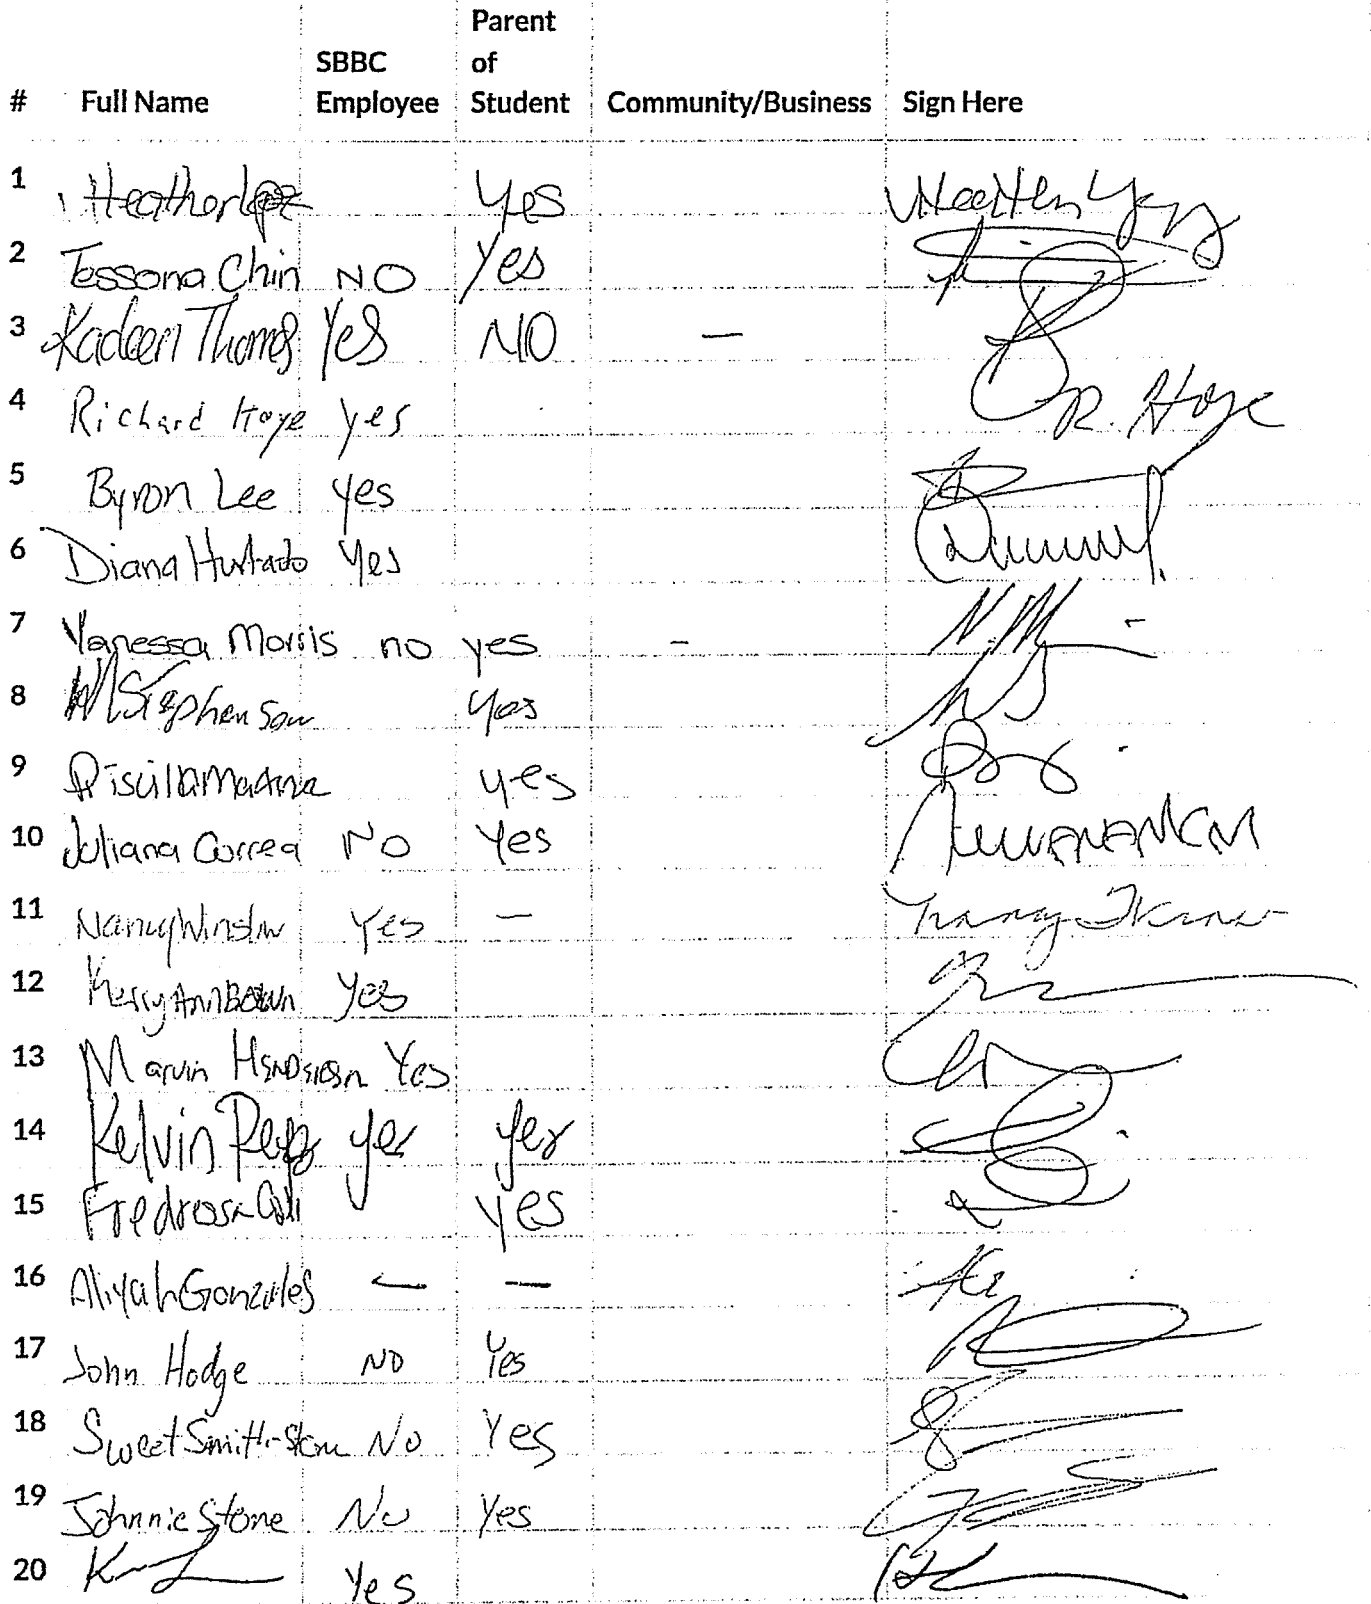 Parent
SBBC of
# Full Name Employee Student Community/Business Sign Here
1 Heather Lopez Yes
2 Tessona Chin NO Yes
3 Kadeen Thomas Yes NO —
4 Richard Hoye yes R. Hoye
5 Byron Lee yes
6 Diana Hurtado Yes
7 Vanessa Morris no yes -
8 Stephenson Yes
9 yes
10 Juliana Correa NO Yes
11 Nancy Winslow Yes —
12 KerryAnn Brown Yes
13 Marvin Henderson Yes
14 Kelvin yes yes
15 Yes
16 Aliyah Gonzales — —
17 John Hodge NO Yes
18 Sweet Smith-Stone No Yes
19 Johnnie Stone No Yes
20 Yes